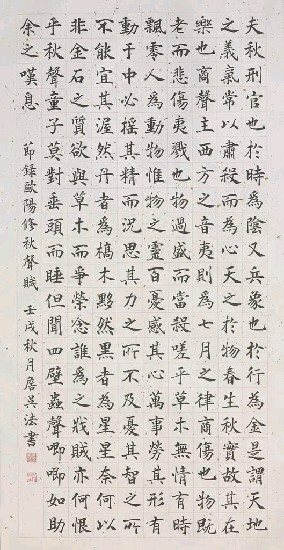 夫秋刑官也於時為陰又兵象也於行為金是謂天地
之義氣常以肅殺而為心天之於物春生秋實故其在
樂也商聲主西方之音夷則為七月之律商傷也物既
老而悲傷夷戮也物過盛而當殺嗟乎草木無情有時
飄零人為動物惟物之靈百憂感其心萬事勞其形有
動于中必搖其精而況思其力之所不及憂其智之所
不能宜其渥然丹者為槁木黟然黑者為星星奈何以
非金石之質欲與草木而爭榮念誰為之戕賊亦何恨
乎秋聲童子莫對垂頭而睡但聞四壁蟲聲唧唧如助
余之嘆息
節錄歐陽修秋聲賦 壬戌秋月詹吳法書